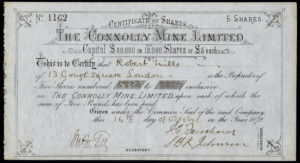 No 1162
5 SHARES.
CERTIFICATE OF SHARES.
THE CONNOLLY MINE LIMITED
Capital £60,000 in 12,000 SHARES of £5 each
This is to Certify that Robert Mills
of 13 Gough Square London is the Proprietor of
Five Shares numbered to inclusive
in THE CONNOLLY MINE LIMITED upon each of which the
sum of Five Pounds has been paid
Given under the Common Seal of the said Company
this 14th day of October in the Year
SECRETARY.